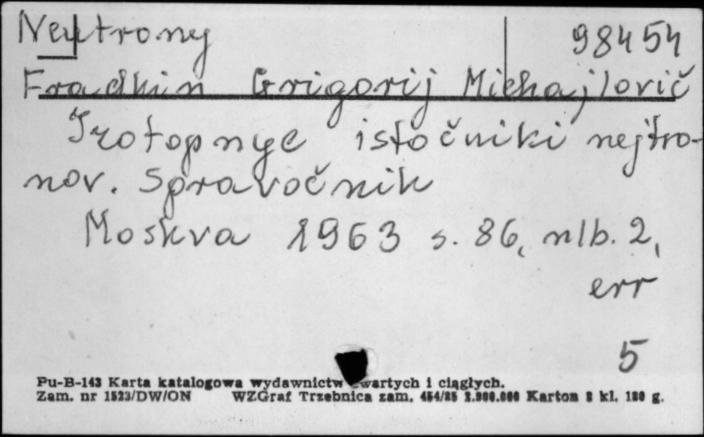 Neutrony 98454
Fradkin Grigorij Michajlovič
Izotopnye istočniki nejtro-
nov. Spravočnik
Moskva 1963 s. 86, nlb. 2,
err
5
Pu-B-143 Karta katalogowa wydawnictw zwartych i ciągłych.
Zam. nr 1523/DW/ON WZGraf Trzebnica zam. 454/85 2.900.000 Karton 2 kl. 180 g.